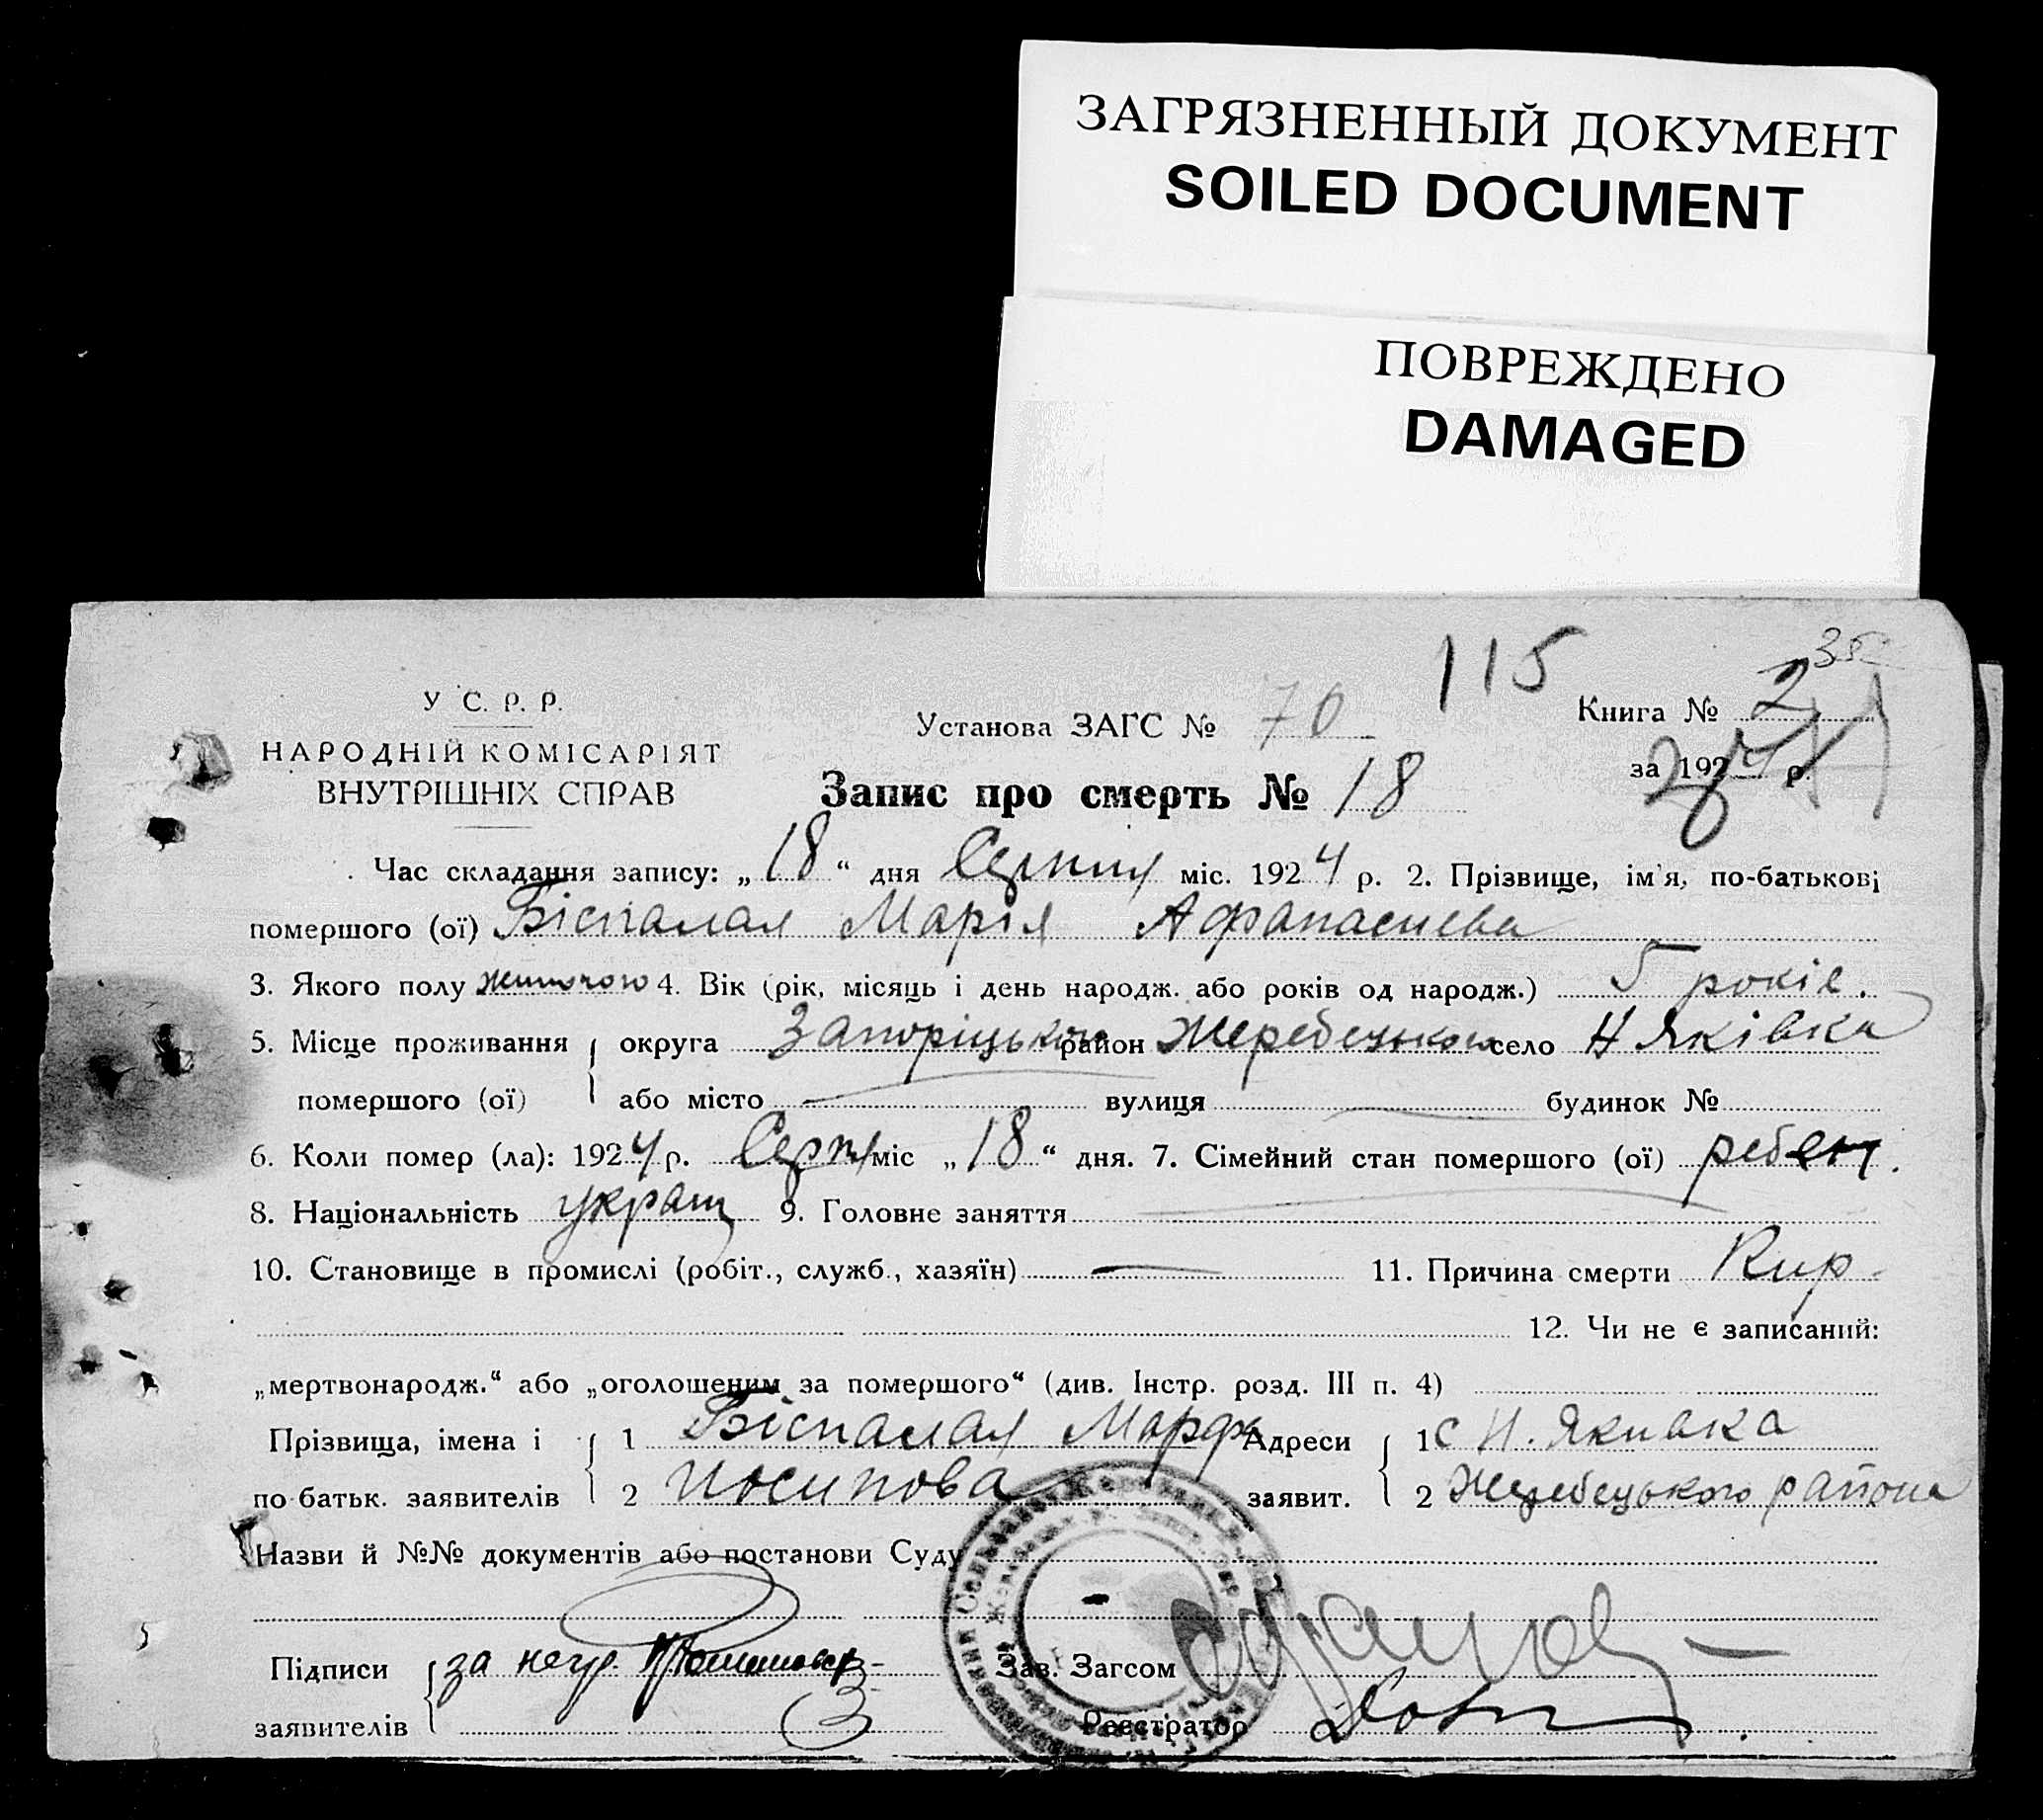 ЗАГРЯЗНЕННЫЙ ДОКУМЕНТ
SOILED DOCUMENT
ПОВРЕЖДЕНО
DAMAGED
35
115
У С. Р. Р.
НАРОДНІЙ КОМІСАРІЯТ
ВНУТРІШНІХ СПРАВ
Установа ЗАГС № 70
Книга № 2
за 1924 р.
Запис про смерть № 18
Час складання запису: „18“ дня Серпня міс. 1924 р. 2. Прізвище, ім'я, по-батькові
помершого (ої) Біспалая Марія Афанасиева
3. Якого полу жиночого 4. Вік (рік, місяць і день народж. або років од народж.) 5 років.
5. Місце проживання округа Запоріцького район Жеребецького село Н Яківка
помершого (ої) або місто вулиця будинок №
6. Коли помер (ла): 1924 р. Серп міс „18“ дня. 7. Сімейний стан помершого (ої) ребен.
8. Національність украін 9. Головне заняття
10. Становище в промислі (робіт., служб., хазяїн) — 11. Причина смерти Кир
12. Чи не є записаний:
„мертвонародж.“ або „оголошеним за помершого“ (див. Інстр. розд. III п. 4)
Прізвища, імена і 1 Біспалая Марфа Адреси 1 с Н. Якивка
по батьк. заявителів 2 Иосипова заявит. 2 Жеребецького района
Назви й №№ документів або постанови Суду
Підписи за негр. Зав. Загсом
заявителів Реєстратор